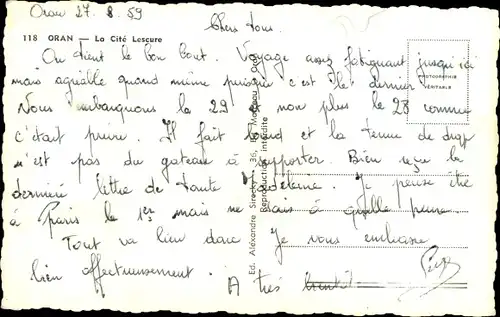 Oran 27.8.59
Chers tous.
118 ORAN — La Cité Lescure
On tient le bon bout. Voyage assez fatiguant jusqu'ici
mais agréable quand même puisque c'est le dernier
Nous embarquons le 29 et non plus le 28 comme
c'était prévu. Il fait chaud et la tenue de drap
n'est pas du gateau à supporter. Bien reçu la
dernière lettre de tante Madeleine. Je pense être
à Paris le 1er mais ne sais à quelle heure.
Tout va bien donc Je vous embrasse
bien affectueusement.
A très bientôt
PHOTOGRAPHIE
VÉRITABLE
Ed. Alexandre Sirecky, 36,
Reproduction interdite